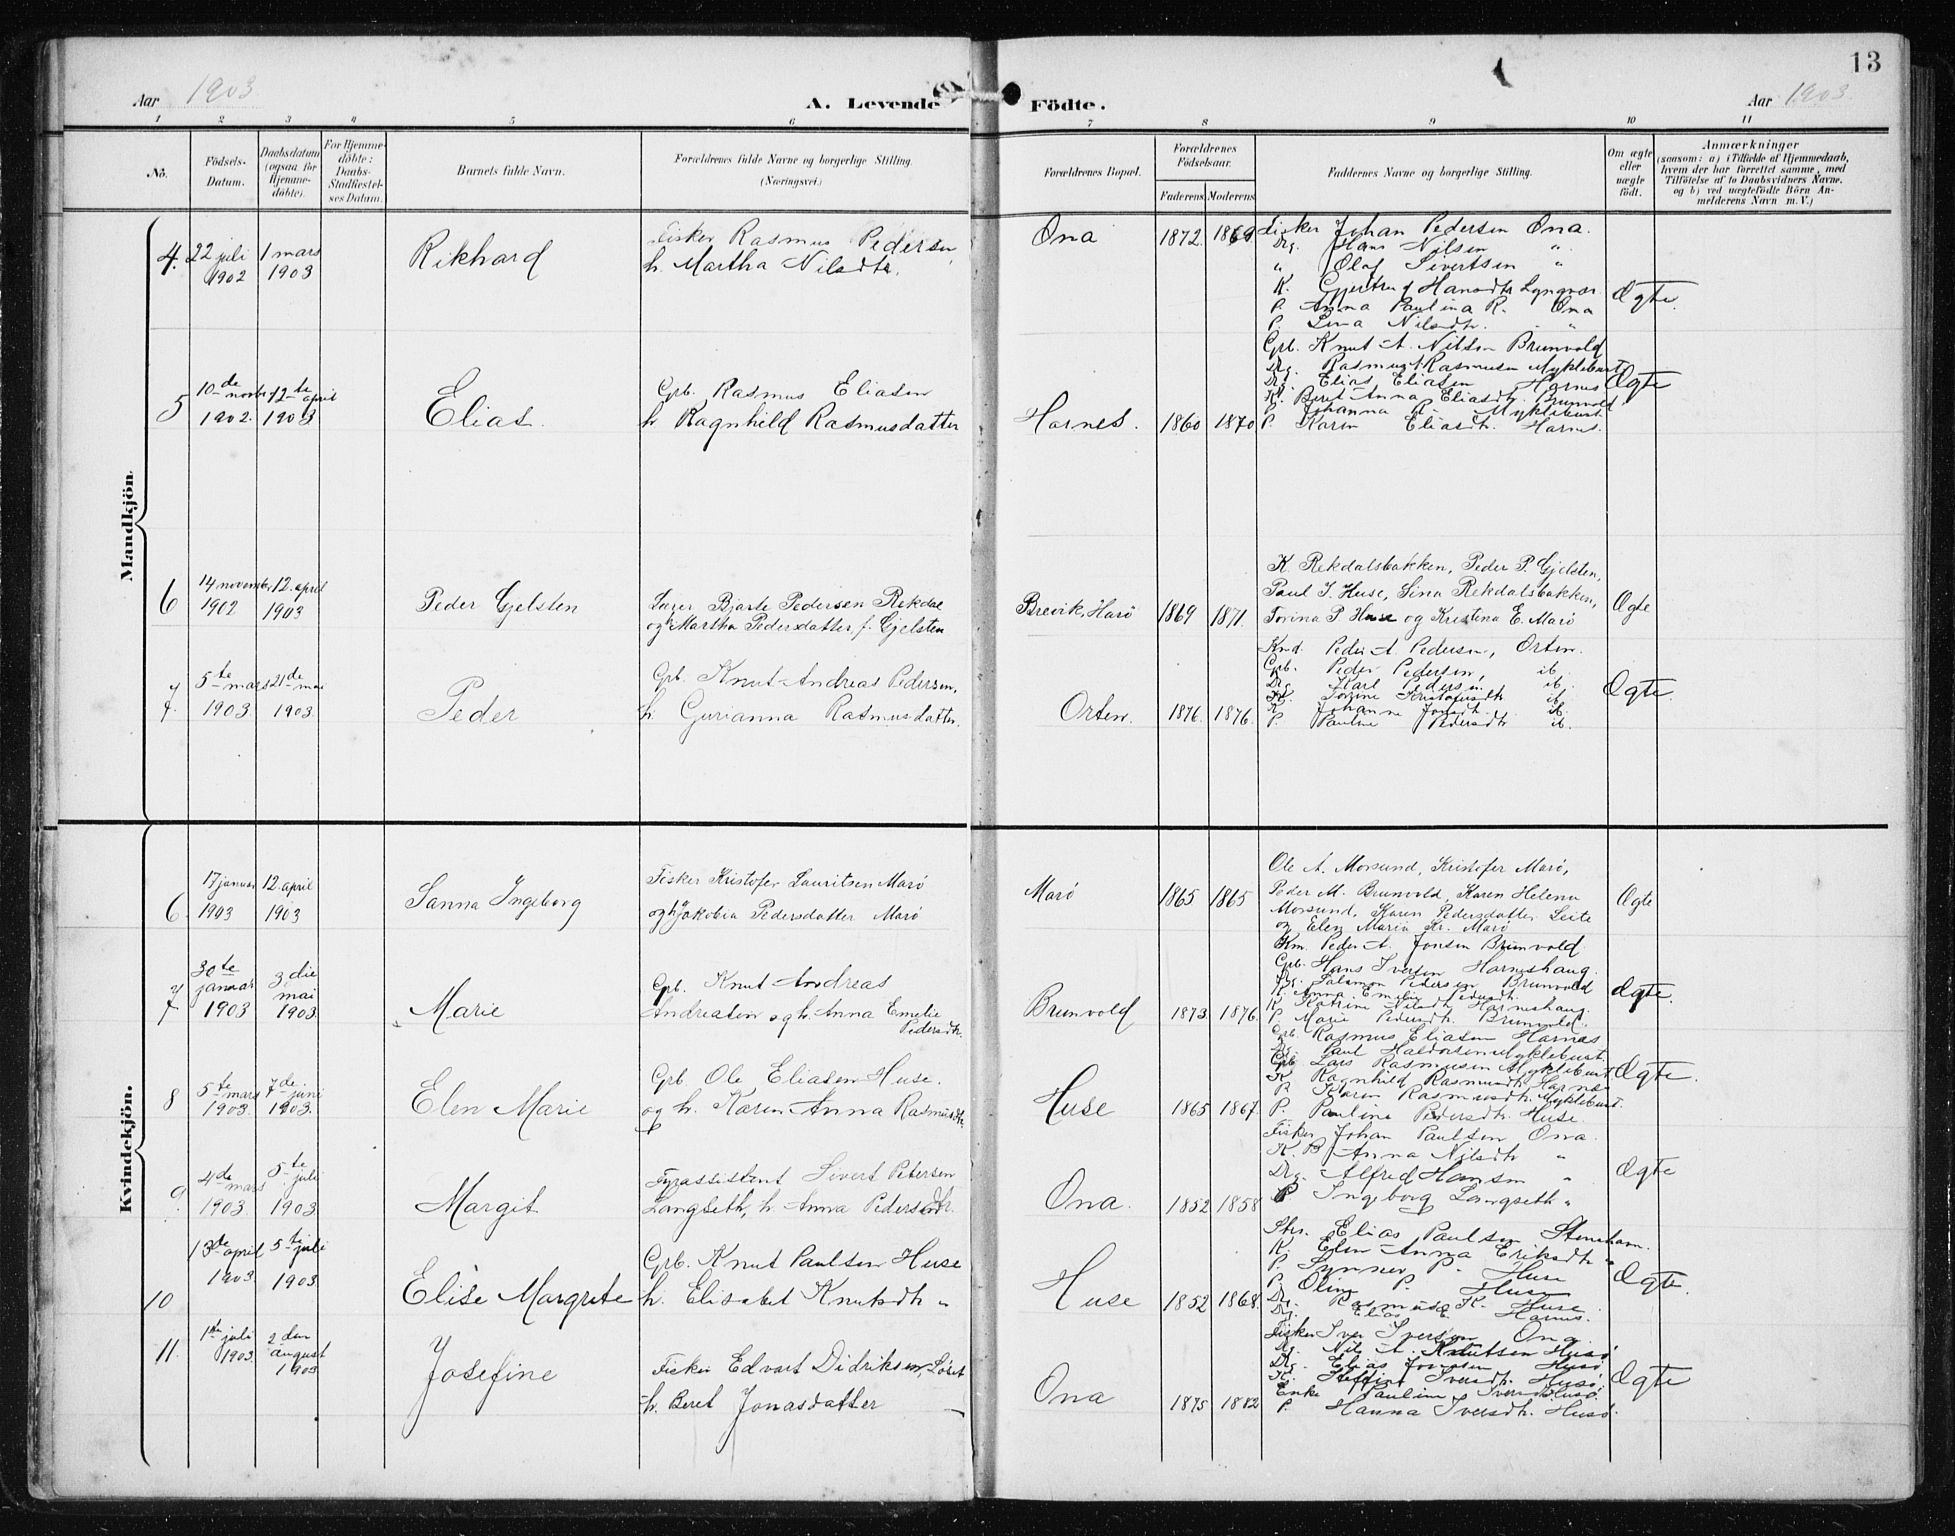 Aar 1903
A. Levende Födte.
Aar 1903.
13
1 2 3 4 5 6 7 8 9 10 11
No.
Födsels-
Datum.
Daabsdatum
(ogsaa for
Hjemme-
döbte).
For Hjemme-
döbte:
Daabs-
Stadfæstel-
ses Datum.
Barnets fulde Navn.
Forældrenes fulde Navne og borgerlige Stilling.
(Næringsvei.)
Forældrenes Bopæl.
Forældrenes
Födselsaar.
Faderens Moderens
Faddernes Navne og borgerlige Stilling.
Om ægte
eller
uægte
födt.
Anmærkninger
(saasom: a) i Tilfælde af Hjemmedaab,
hvem der har forrettet samme, med
Tilföielse af to Daabsvidners Navne.
og b) ved uægtefödte Börn An-
melderens Navn m. V.)
Mandkjön.
4. 22 juli 1902
1 mars 1903
Rikhard
Fisker Rasmus Pedersen,
h. Martha Nilsdtr.
Ona
1872. 1869.
Fisker Johan Pedersen Ona.
Drg. Hans Nilsen "
" Olaf Sivertsen "
K. Gjertrud Hansdtr Lyngvær.
P. Anna Paulina R. Ona
P. Lina Nilsdtr. "
Ægte.
5 10de novbr 1902.
12te april 1903
Elias.
Gpb. Rasmus Eliasen
h. Ragnhild Rasmusdatter
Harnes.
1860 1870
Gpb. Knut A. Nilsen Brunvold
Drg. Rasmus Rasmusen Myklebust
Drg. Elias Eliasen Harnes
K. Beret Anna Eliasdtr. Brunvold.
P. Johanna R. Myklebust.
P. Karen Eliasdtr. Harnes.
Ægte
6 14 november 1902
12. april 1903
Peder Gjelsten
Inger Bjarte Pedersen Rekdal
og Martha Pedersdatter f. Gjelsten
Brevik, Harö
1869 1871.
K. Rekdalsbakken, Peder P. Gjelsten,
Paul I. Huse, Sina Rekdalsbakken,
Torina P. Huse og Kristina E. Marö
Ægte
7. 5te mars 1903.
21de mai 1903.
Peder
Gpb. Knut Andreas Pedersen,
h. Gurianna Rasmusdatter.
Orten.
1876. 1876.
Peder A. Pedersen, Orten.
Gpb. Peder Pedersen, ib.
Drg. Karl Pedersen ib.
K. Johanne Jonsdtr. ib.
P. Pauline Pedersdtr ib.
Ægte.
Kvindekjön.
6. 17 januar 1903
12. april 1903
Sanna Ingeborg
Fisker Kristofer Lauritsen Marö
og h. Jakobia Pedersdatter Marö
Marö
1865 1865
Ole A. Morsund, Kristofer Marö,
Peder M. Brunvold, Karen Helena
Morsund, Karen Pedersdatter Leite
og Elen Maria Kr. Marö
Ægte
7 30te januar 1903
3die mai 1903
Marie
Gpb. Knut Andreas
Andreasen og h. Anna Emelie
Pedersdtr.
Brunvold
1873 1876.
Km. Peder A. Jonsen Brunvold.
Gpb. Hans Iversen Harneshaug.
Drg. Salamon Pedersen Brunvold
K. Anna Emelie Pedersdtr.
K. Katrine Nilsdtr. Harneshaug.
P. Marie Pedersdtr. Brunvold.
Ægte.
8 5te mars 1903.
7de juni 1903.
Elen Marie
Gpb. Ole Eliasen Huse.
og h. Karen Anna Rasmusdtr.
Huse
1865 1867.
Gpb. Rasmus Eliasen Harnes
Drg. Paul Haldorsen Myklebust.
Gpb. Lars Rasmusen Myklebust
K. Ragnhild Rasmusdtr. Harnes
P. Karen Rasmusdtr. Myklebust.
P. Pauline Pedersdtr. Huse.
Ægte.
9. 4de mars 1903
5te juli 1903
Margit
Fyrassistent Sivert Petersen
Langseth, h. Anna Pedersdtr.
Ona.
1852 1858
Fisker Johan Paulsen Ona.
K. B. Anna Nilsdtr "
Drg. Alfred Hansen "
P. Ingeborg Langseth "
Ægte
10 13de april 1903.
5te juli 1903.
Elise Margrete
Gpb. Knut Paulsen Huse
h. Elisabet Knutsdtr "
Huse
1852 1868.
Elias Paulsen Stensham.
K. Elen Anna Eriksdtr "
P. Synnev P. Huse
P. Oline P. Huse
Drg. Rasmus K. Huse.
Drg. Elias E. Harnes.
Ægte.
11. 1ste juli 1903.
2den august 1903
Josefine
Fisker Edvart Didriksen,
h. Beret Jonasdatter
Ona
1875 1882
Fisker Iver Iversen Ona.
Drg. Nils A. Knutsen Husö
Drg. Elias Jonasen Husö
K. Steffine Iversdtr. Husö.
Enke Pauline Iversdtr Husö
P. Hanna Iversdtr. Husö.
Ægte